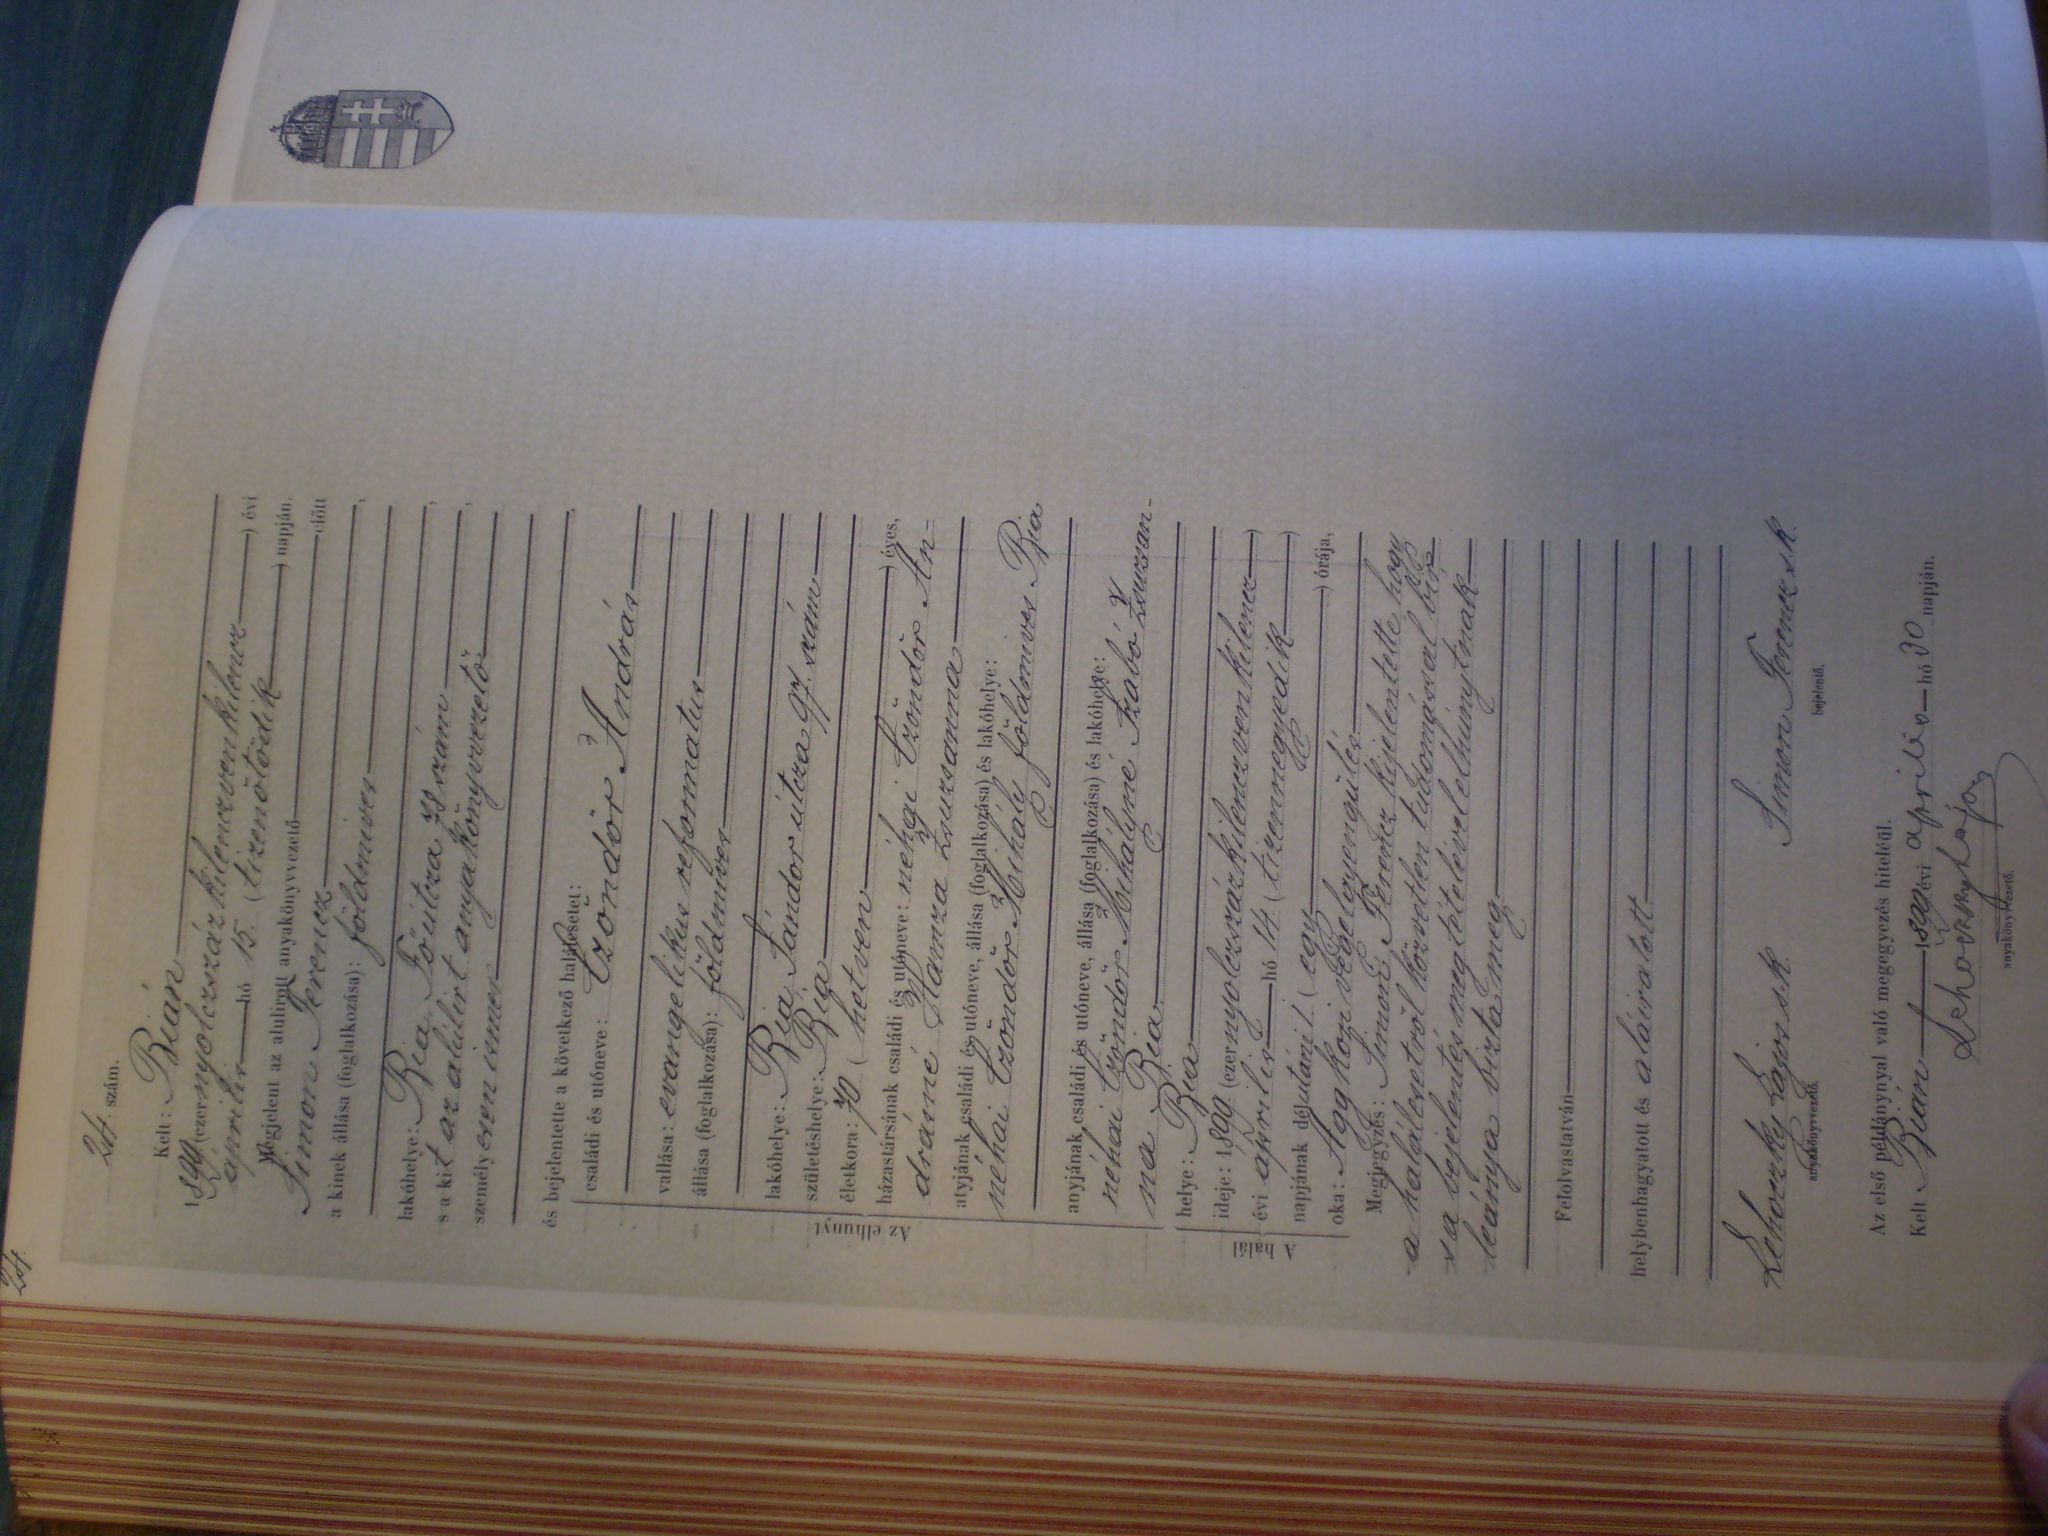 24.
24. szám.
Kelt: Bián
1899 (ezernyolczszázkilenczvenkilencz) évi
április hó 15. (tizenötödik) napján.
Megjelent az alulirott anyakönyvvezető előtt
Simon Ferencz
a kinek állása (foglalkozása): földmives,
lakóhelye: Bia, Főútcza 78 szám,
s a kit az alúlirt anyakönyvvezető
személyesen ismer,
és bejelentette a következő halálesetet:
Az elhunyt
családi és utóneve: Czöndör András
vallása: evangelikus reformatus
állása (foglalkozása): földmives
lakóhelye: Bia Sándor útcza 97. szám
születéshelye: Bia
életkora: 70 (hetven) éves,
házastársának családi és utóneve: néhai Czöndör An-
drásné Hamza Zsuzsanna
atyjának családi és utóneve, állása (foglalkozása) és lakóhelye:
néhai Czöndör Mihály földmives Bia
anyjának családi és utóneve, állása (foglalkozása) és lakóhelye:
néhai Czöndör Mihályné Szabó Zsuzsan-
na Bia
A halál
helye: Bia
ideje: 1899. (ezernyolczszázkilenczvenkilencz)
évi április hó 14. (tizennegyedik)
napjának délutáni 1 (egy) órája,
oka: Aggkori végelgyengülés
Megjegyzés: Simon Ferencz kijelentette hogy
a halálesetről közvetlen tudomással bir
s a bejelentés megtételével elhúnytnak
leánya bizta meg.
Felolvastatván
helybenhagyatott és aláiratott
Lehoczky Lajos s.k. Simon Ferencz s.k.
anyakönyvvezető. bejelentő.
Az első példánynyal való megegyezés hiteléül.
Kelt Bián 1899 évi április hó 30 napján.
Lehoczky Lajos
anyakönyvvezető.